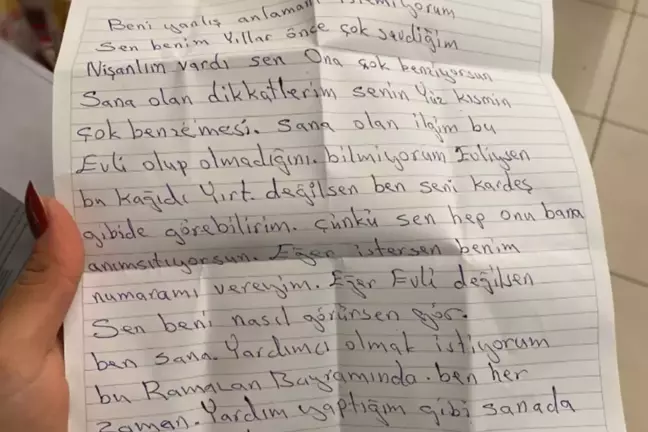 Beni yanlış anlamanı istemiyorum
Sen benim Yıllar önce çok sevdiğim
Nişanlım vardı sen Ona çok benziyorsun
Sana olan dikkatlerim senin Yüz kısmın
çok benzemesi. Sana olan ilgim bu
Evli olup olmadığını. bilmiyorum Evliysen
bu kağıdı Yırt. değilsen ben seni kardeş
gibide görebilirim. Çünkü sen hep onu bana
anımsıtıyorsun. Eğer istersen benim
numaramı vereyim. Eğer Evli değilsen
Sen beni nasıl görürsen gör.
ben sana. Yardımcı olmak istiyorum
bu Ramazan Bayramında. ben her
zaman. Yardım yaptığım gibi sanada